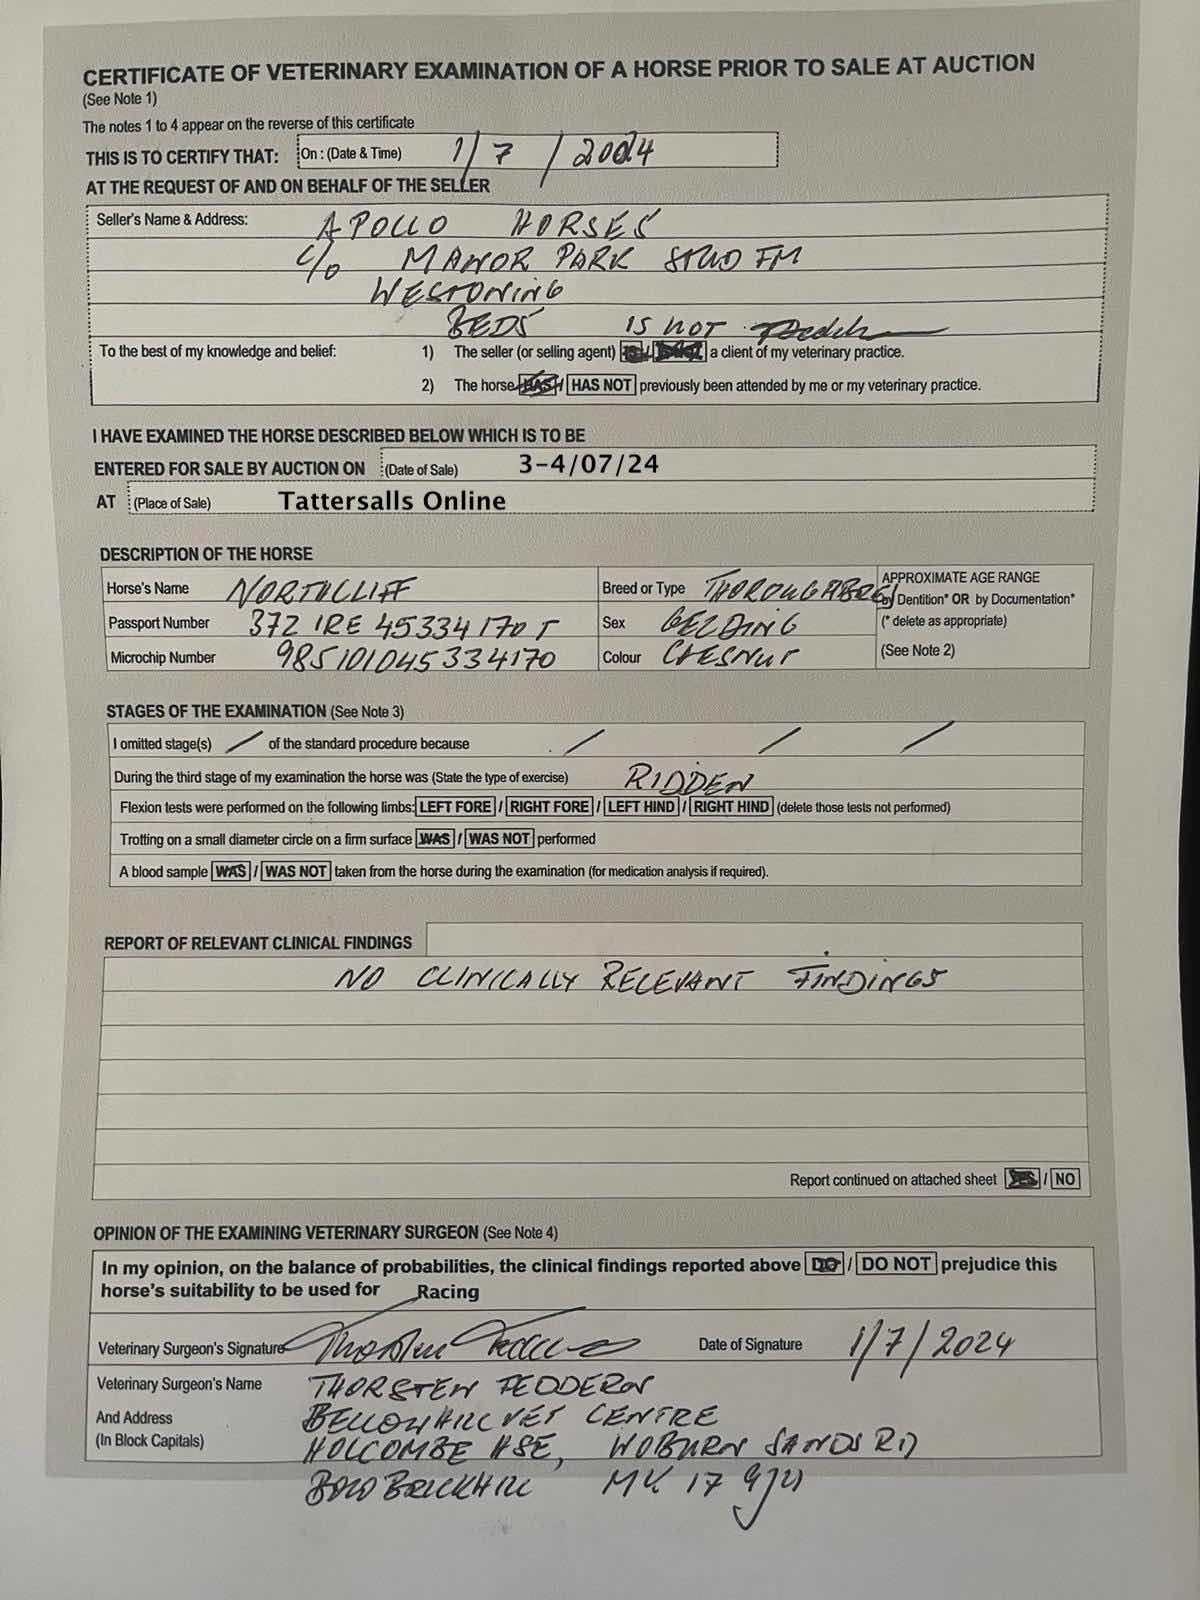 CERTIFICATE OF VETERINARY EXAMINATION OF A HORSE PRIOR TO SALE AT AUCTION
(See Note 1)
The notes 1 to 4 appear on the reverse of this certificate
THIS IS TO CERTIFY THAT: On : (Date & Time) 1/7/2024
AT THE REQUEST OF AND ON BEHALF OF THE SELLER
Seller's Name & Address: APOLLO HORSES
c/o MANOR PARK STUD FM
WESTONING
BEDS IS NOT
To the best of my knowledge and belief: 1) The seller (or selling agent) IS / a client of my veterinary practice.
2) The horse HAS / HAS NOT previously been attended by me or my veterinary practice.
I HAVE EXAMINED THE HORSE DESCRIBED BELOW WHICH IS TO BE
ENTERED FOR SALE BY AUCTION ON (Date of Sale) 3-4/07/24
AT (Place of Sale) Tattersalls Online
DESCRIPTION OF THE HORSE
Horse's Name NORTHCLIFF Breed or Type THOROUGHBRED APPROXIMATE AGE RANGE
by Dentition* OR by Documentation*
Passport Number 372 IRE 45334170 T Sex GELDING (* delete as appropriate)
Microchip Number 985101045334170 Colour CHESNUT (See Note 2)
STAGES OF THE EXAMINATION (See Note 3)
I omitted stage(s) / of the standard procedure because / / /
During the third stage of my examination the horse was (State the type of exercise) RIDDEN
Flexion tests were performed on the following limbs: LEFT FORE / RIGHT FORE / LEFT HIND / RIGHT HIND (delete those tests not performed)
Trotting on a small diameter circle on a firm surface WAS / WAS NOT performed
A blood sample WAS / WAS NOT taken from the horse during the examination (for medication analysis if required).
REPORT OF RELEVANT CLINICAL FINDINGS
NO CLINICALLY RELEVANT FINDINGS
Report continued on attached sheet YES / NO
OPINION OF THE EXAMINING VETERINARY SURGEON (See Note 4)
In my opinion, on the balance of probabilities, the clinical findings reported above DO / DO NOT prejudice this
horse's suitability to be used for Racing
Veterinary Surgeon's Signature Thorsten Feddern Date of Signature 1/7/2024
Veterinary Surgeon's Name THORSTEN FEDDERN
And Address BELLOWHILL VET CENTRE
(In Block Capitals) HOLCOMBE HSE, WOBURN SANDS RD
BOW BRICKHILL MK 17